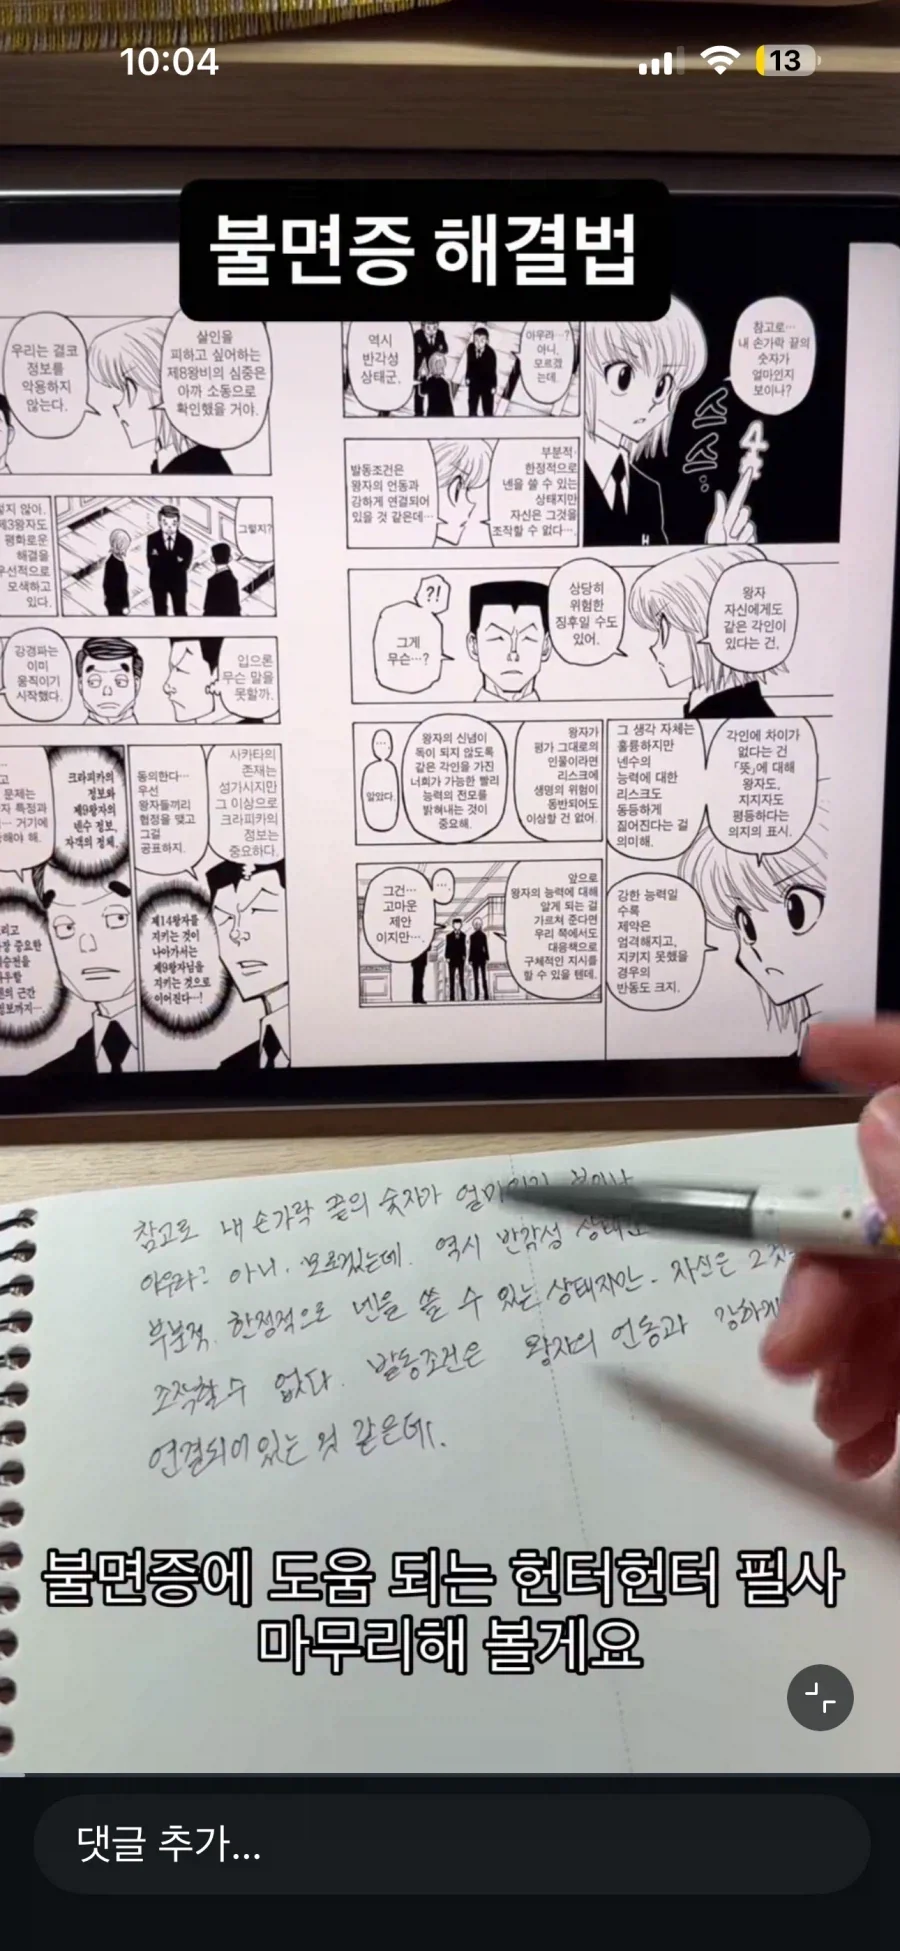 10:04
13
불면증 해결법
우리는 결코
정보를
악용하지
않는다.
살인을
피하고 싶어하는
제8왕비의 심중은
아까 소동으로
확인했을 거야.
않아.
제3왕자도
평화로운
해결을
우선적으로
모색하고
있다.
그렇지?
강경파는
이미
움직이기
시작했다.
입으론
무슨 말을
못할까.
문제는
특정과
거기에
해야 해.
크라피카의
정보와
제9왕자의
넨수 정보,
자객의 정체.
동의한다…
우선
왕자들끼리
협정을 맺고
그걸
공표하지.
사카타의
존재는
성가시지만
그 이상으로
크라피카의
정보는
중요하다.
중요한
근간
제14왕자를
지키는 것이
나아가서는
제9왕자님을
지키는 것으로
이어진다…!
역시
반각성
상태군.
아우라…?
아니,
모르겠
는데.
참고로…
내 손가락 끝의
숫자가
얼마인지
보이나?
스
스
4
발동조건은
왕자의 언동과
강하게 연결되어
있을 것 같은데…
부분적·
한정적으로
넨을 쓸 수 있는
상태지만
자신은 그것을
조작할 수 없다….
?!
그게
무슨…?
상당히
위험한
징후일 수도
있어.
왕자
자신에게도
같은 각인이
있다는 건,
…
알았다.
왕자의 신념이
독이 되지 않도록
같은 각인을 가진
너희가 가능한 빨리
능력의 전모를
밝혀내는 것이
중요해.
왕자가
평가 그대로의
인물이라면
리스크에
생명의 위험이
동반되어도
이상할 건 없어.
그 생각 자체는
훌륭하지만
넨수의
능력에 대한
리스크도
동등하게
짊어진다는 걸
의미해.
각인에 차이가
없다는 건
「뜻」에 대해
왕자도,
지지자도
평등하다는
의지의 표시.
그건…
고마운
제안
이지만….
…
앞으로
왕자의 능력에 대해
알게 되는 걸
가르쳐 준다면
우리 쪽에서도
대응책으로
구체적인 지시를
할 수 있을 텐데.
강한 능력일
수록
제약은
엄격해지고,
지키지 못했을
경우의
반동도 크지.
참고로 내 손가락 끝의 숫자가 얼마인지 보이나
아우라? 아니. 모르겠는데. 역시 반각성 상태군
부분적. 한정적으로 넨을 쓸 수 있는 상태지만. 자신은 그것을
조작할 수 없다. 발동조건은 왕자의 언동과 강하게
연결되어 있는 것 같은데.
불면증에 도움 되는 헌터헌터 필사
마무리해 볼게요
댓글 추가...